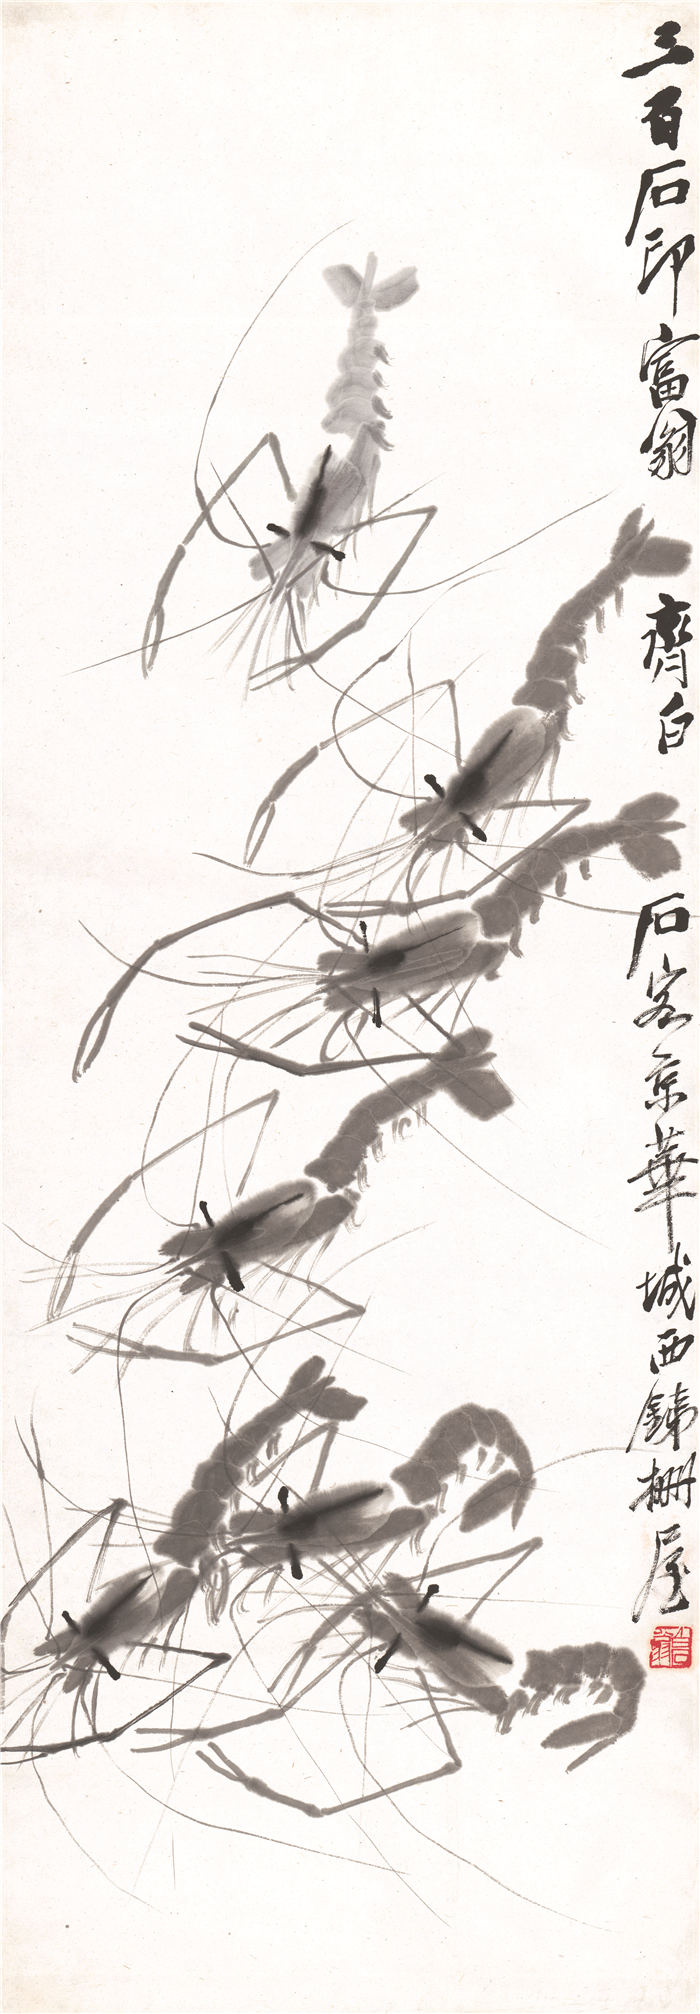 三百石印富翁 齊白石客京華城西銕柵屋